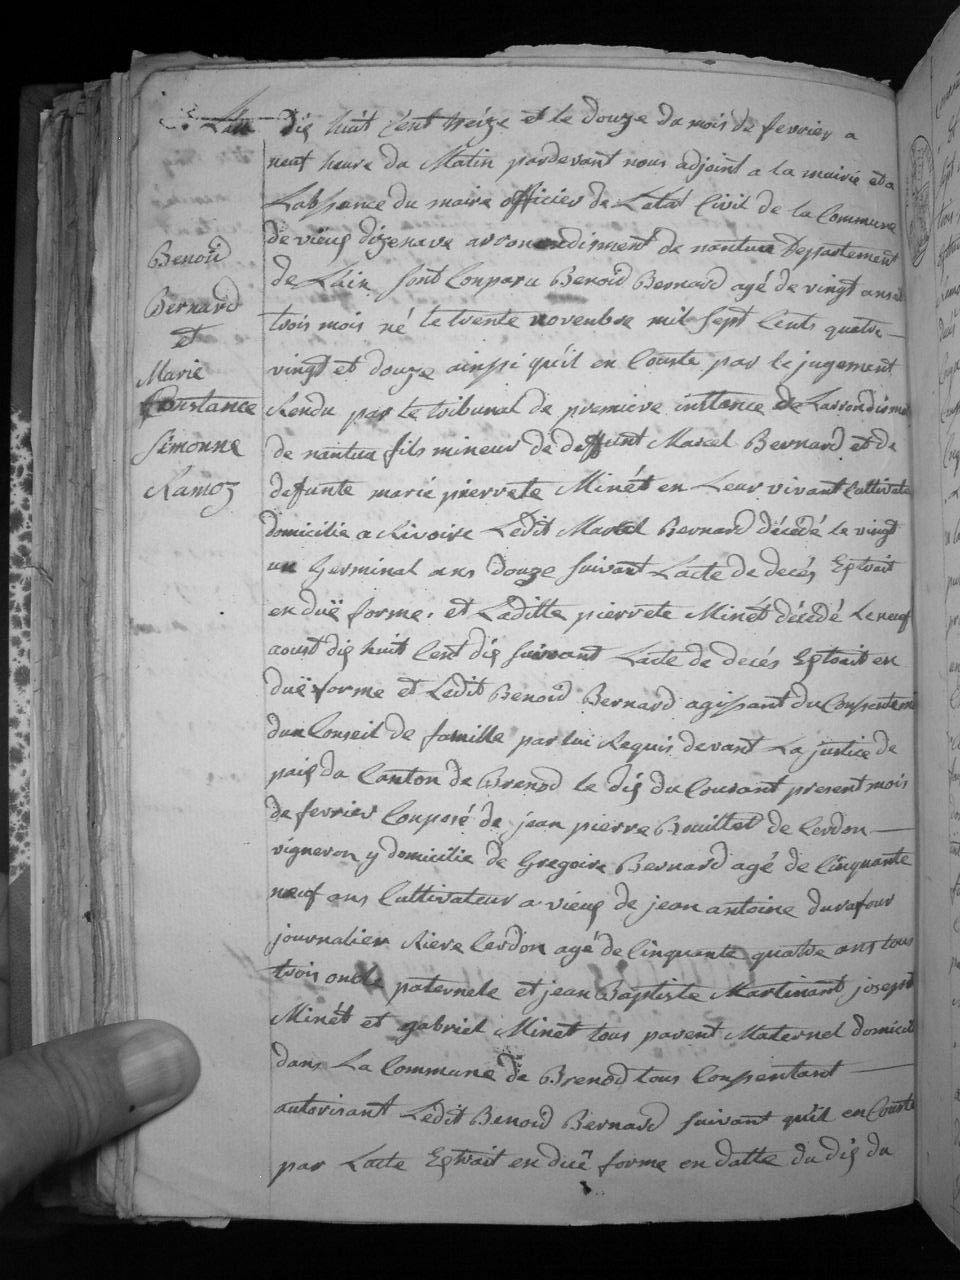 Benoit
Bernard
et
Marie
Constance
Simonne
Ramoz
Lan dix huit Cent treize et le douze du mois de fevrier a
neuf heure du Matin pardevant nous adjoint a la mairie et a
Labssance du maire officier de Letat Civil de la Commune
de vieux dizenave arronendisment de nantua Departement
de Lain sont Conparu Benoid Bernard agé de vingt ans et
trois mois né le trente novenbre mil sept Cents quatre
vingt et douze ainssi quil en Conste par le jugement
Rendu par le tribunal de premiere insttance de Larrondisment
de nantua fils mineur de deffunt Marcel Bernard et de
defunte marie pierrete Minét en Leur vivant Cultivate
domicilie a Rivoire Ledit Marcel Bernard décédé le vingt
un Germinal ans douze suivant Lacte de decés Extrait
en duë forme. et Laditte pierrete Minét décédé Le neuf
aoust dix huit Cent dix suivant Lacte de decés Extrait en
duë forme et Ledit Benoid Bernard agissant du Conssentement
dun Conseil de famille par lui Requis devant La justice de
paix du Canton de Brenod le dix du Courant present mois
de fevrier Conposé de jean pierre Bouillet de Cerdon
vigneron y domicilie de Gregoire Bernard agé de Cinquante
neuf ans Cultivateur a vieux de jean antoine durafour
journalier Riere Cerdon agé de Cinquante quatre ans tous
trois oncle paternele et jean Baptiste Martinant joseph
Minét et gabriel Minet tous parent Maternel domicili
dans La Commune de Brenod tous Conssentant
autorisant Ledit Benoid Bernard suivant quil en Conste
par Lacte Extrait en duë forme en datte du dix du